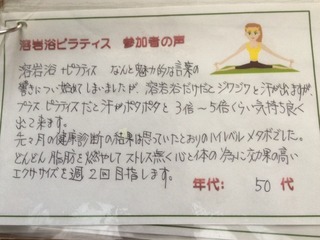 溶岩浴ピラティス 参加者の声
溶岩浴 +ピラティス なんと魅力的な言葉の
響きについ始めてしまいましたが、溶岩浴だけだとジワジワと汗が出ますが、
プラス ピラティスだと汗がポタポタと 3倍〜5倍くらい気持ち良く
出て来ます。
先々月の健康診断の結果は思っていたとおりのMレベルメタボでした。
どんどん脂肪を燃やして ストレス無く心と体の為に効果の高い
エクササイズを週2回目指します。
年代: 50代